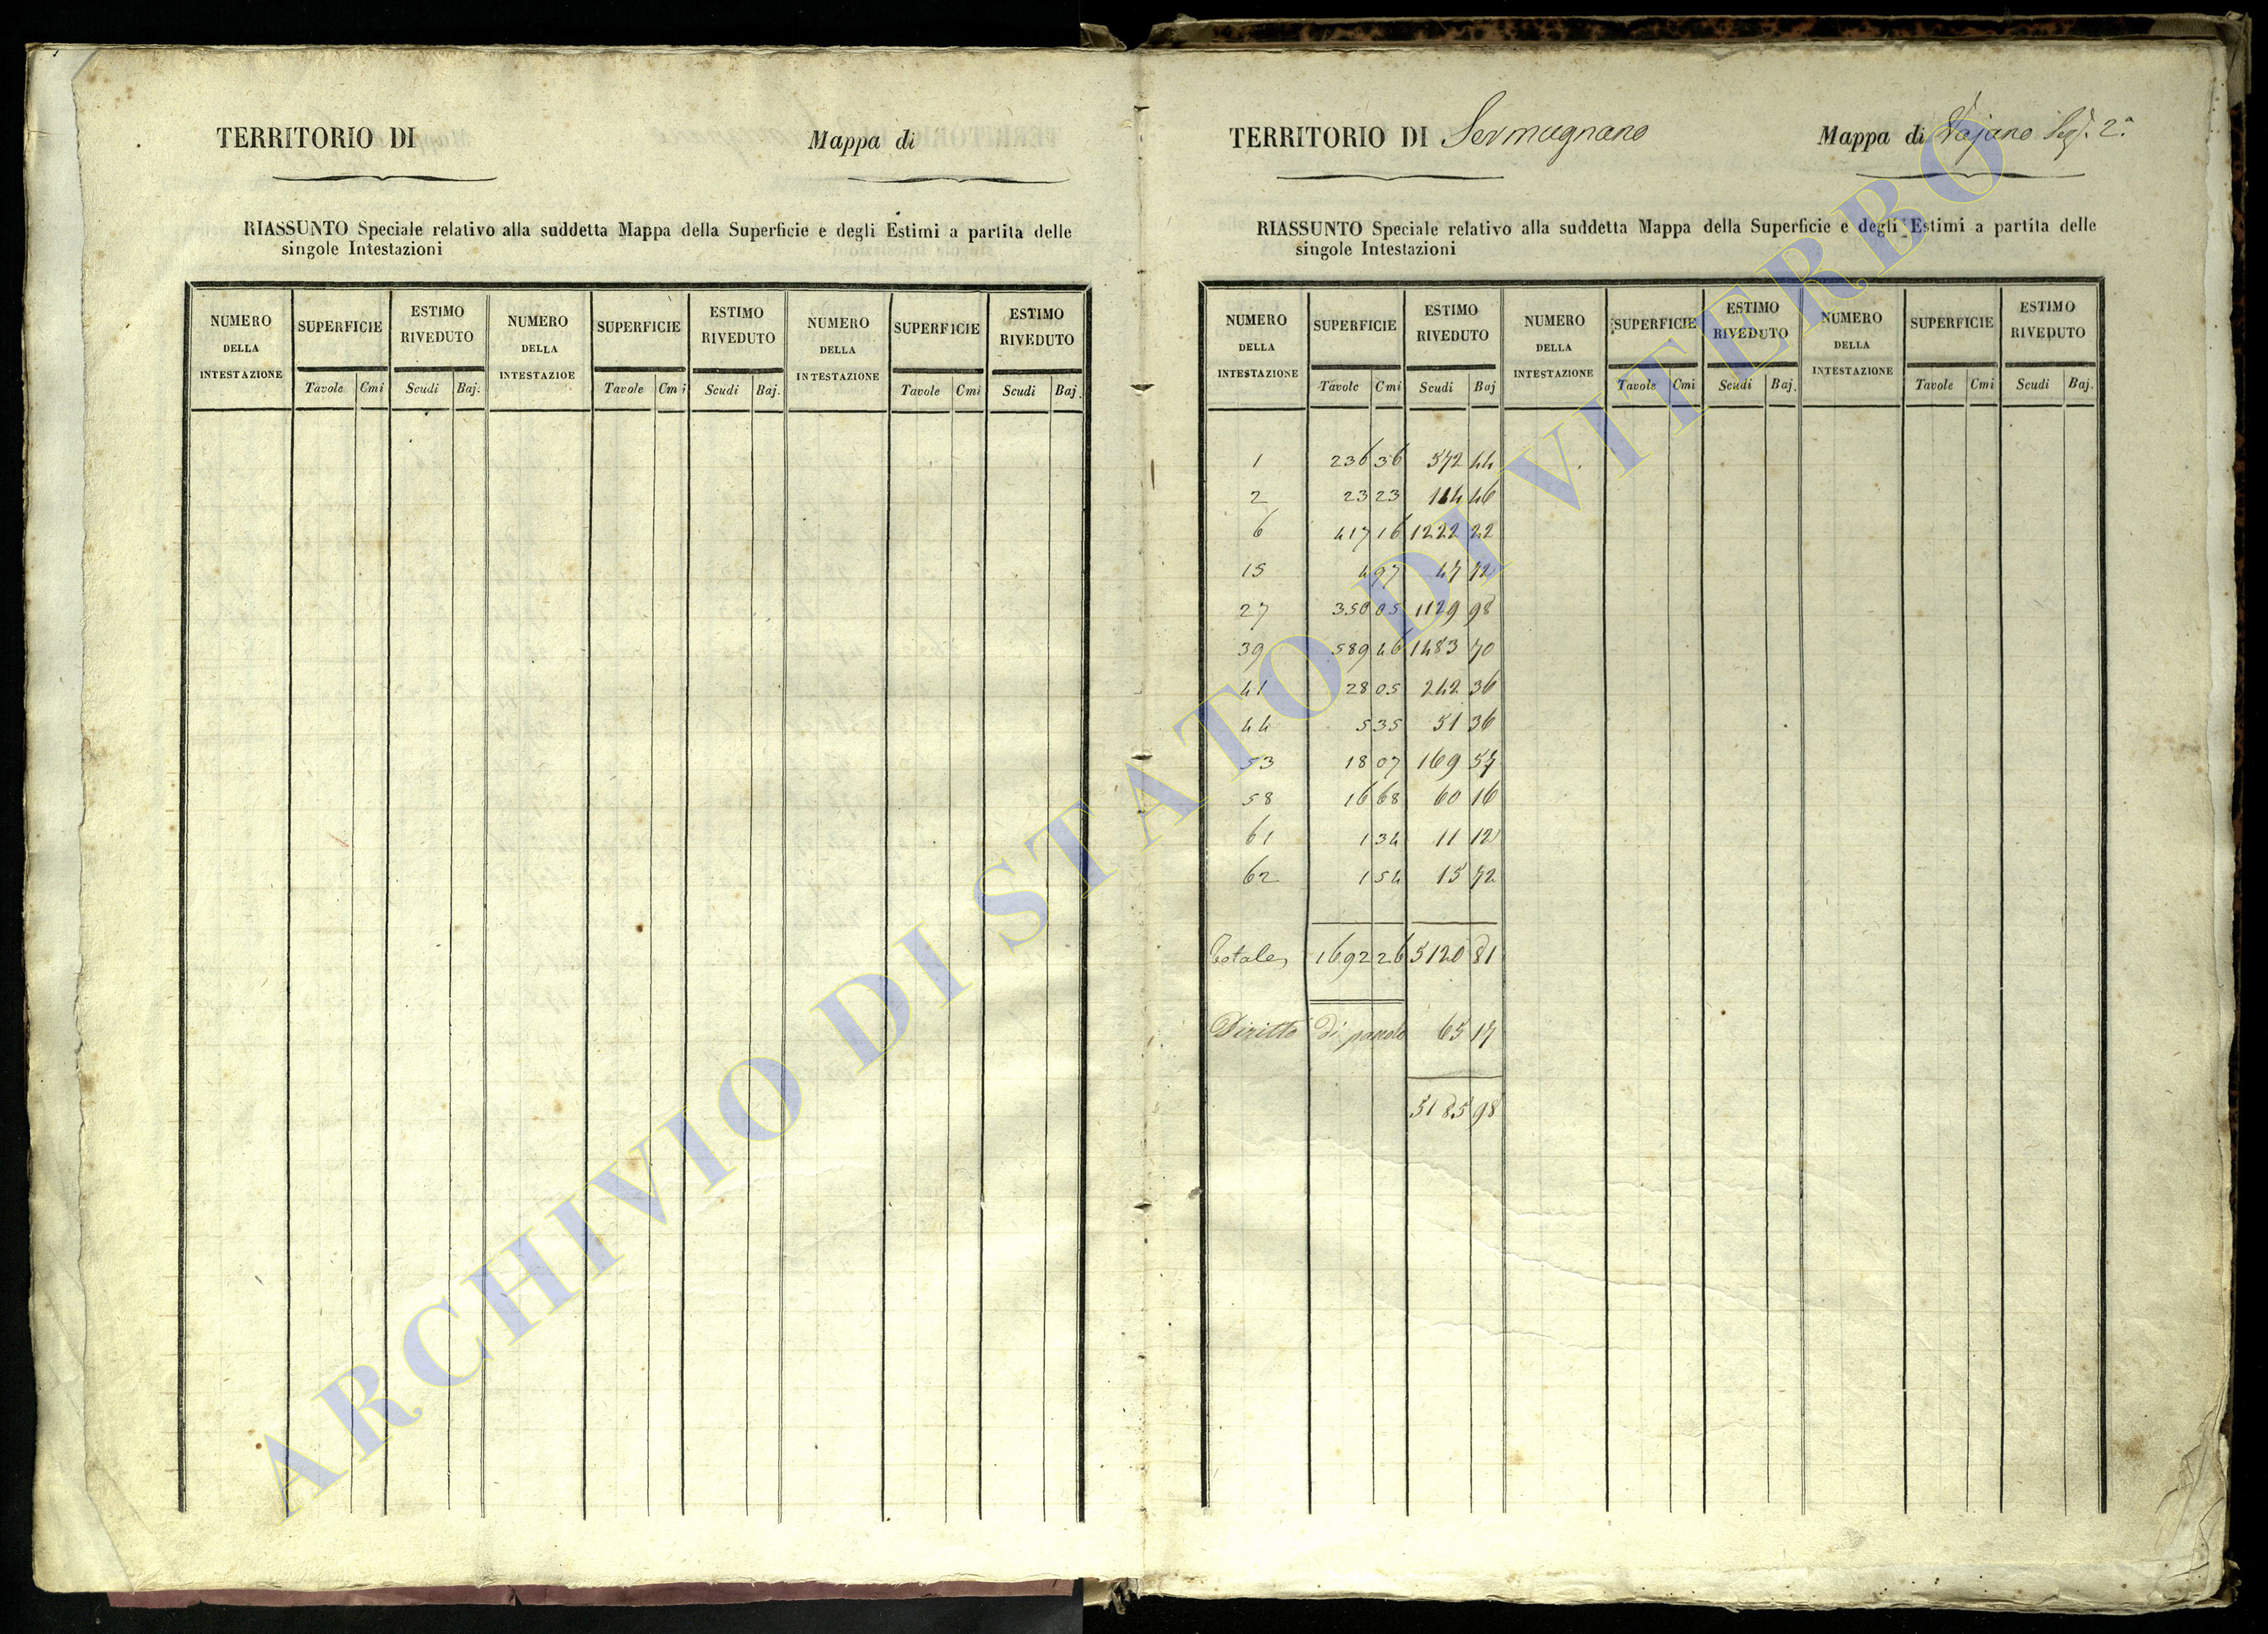 TERRITORIO DI
Mappa di
RIASSUNTO Speciale relativo alla suddetta Mappa della Superficie e degli Estimi a partita delle
singole Intestazioni
NUMERO DELLA INTESTAZIONE SUPERFICIE ESTIMO RIVEDUTO NUMERO DELLA INTESTAZIOE SUPERFICIE ESTIMO RIVEDUTO NUMERO DELLA INTESTAZIONE SUPERFICIE ESTIMO RIVEDUTO
Tavole Cmi Scudi Baj. Tavole Cmi Scudi Baj. Tavole Cmi Scudi Baj.
TERRITORIO DI Sermugnano
Mappa di Vajano Sez. 2ª
RIASSUNTO Speciale relativo alla suddetta Mappa della Superficie e degli Estimi a partita delle
singole Intestazioni
NUMERO DELLA INTESTAZIONE SUPERFICIE ESTIMO RIVEDUTO NUMERO DELLA INTESTAZIONE SUPERFICIE ESTIMO RIVEDUTO NUMERO DELLA INTESTAZIONE SUPERFICIE ESTIMO RIVEDUTO
Tavole Cmi Scudi Baj Tavole Cmi Scudi Baj. Tavole Cmi Scudi Baj.
1 236 36 572 44
2 23 23 114 46
6 417 16 1222 22
15 4 97 47 72
27 350 05 1129 98
39 589 46 1483 70
41 28 05 242 36
44 5 35 51 36
53 18 07 169 57
58 16 68 60 16
61 1 34 11 12
62 1 54 15 72
Totale 1692 26 5120 81
Diritto di pascolo 65 17
5185 98
ARCHIVIO DI STATO DI VITERBO